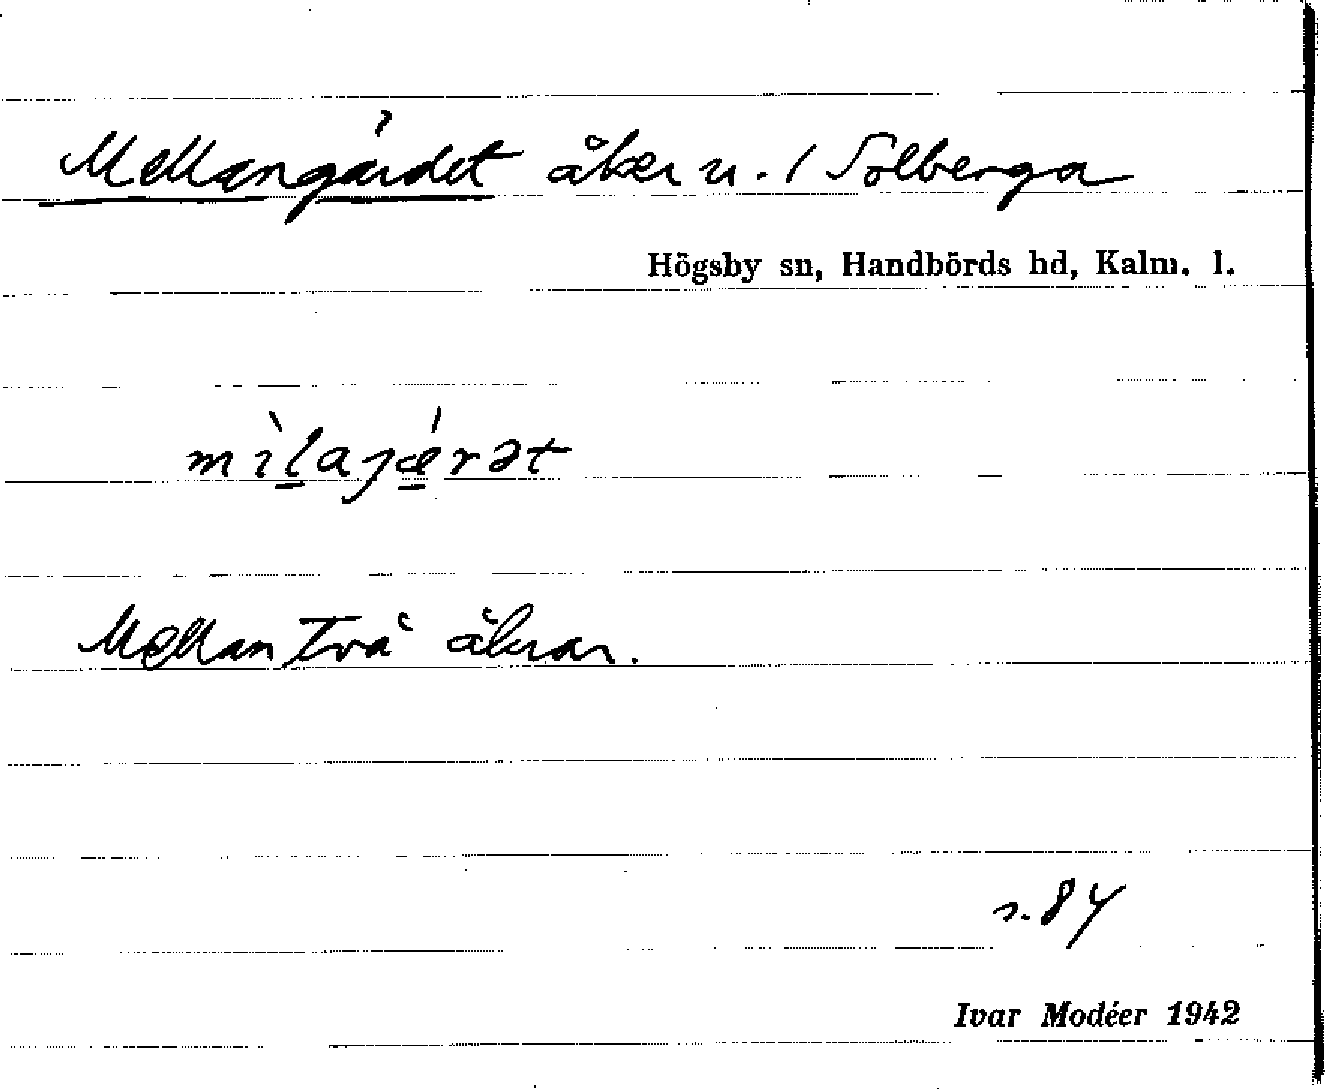 Mellangärdet åker u. 1 Solberga
Högsby sn, Handbörds hd, Kalm. l.
mìlajǽrət
Mellan två åkrar.
s. 84
Ivar Modéer 1942